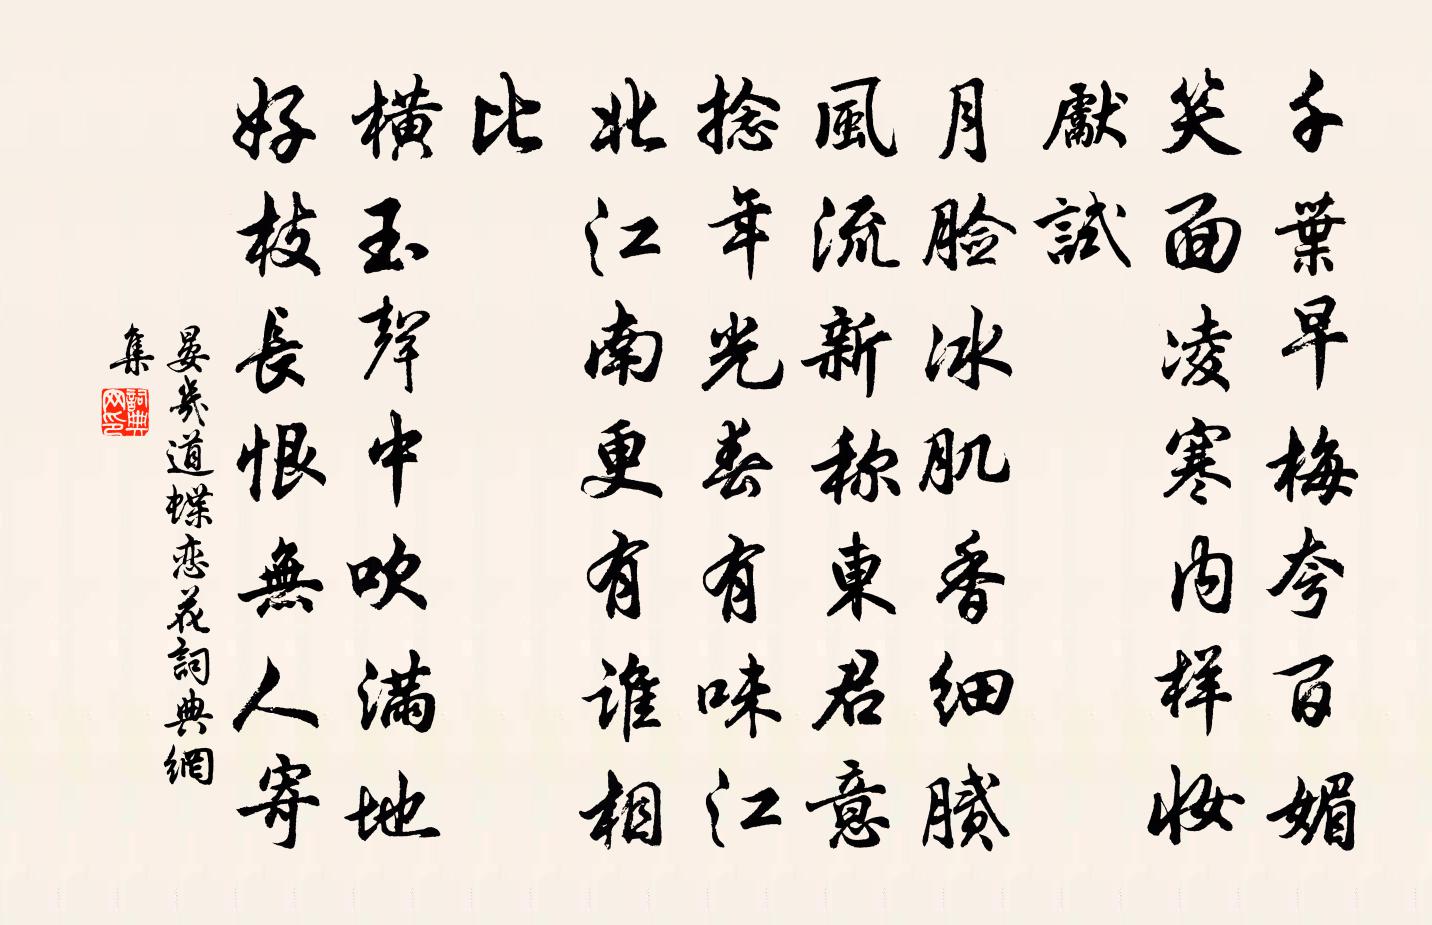 千葉早梅夸百媚
笑面凌寒内样妆
獻試
月脸冰肌香细膩
風流新称東君意
捻年光春有味江
北江南更有谁相
比
橫玉聲中吹满地
好枝長恨無人寄
晏幾道蝶恋花詞典網
集
詞典网印